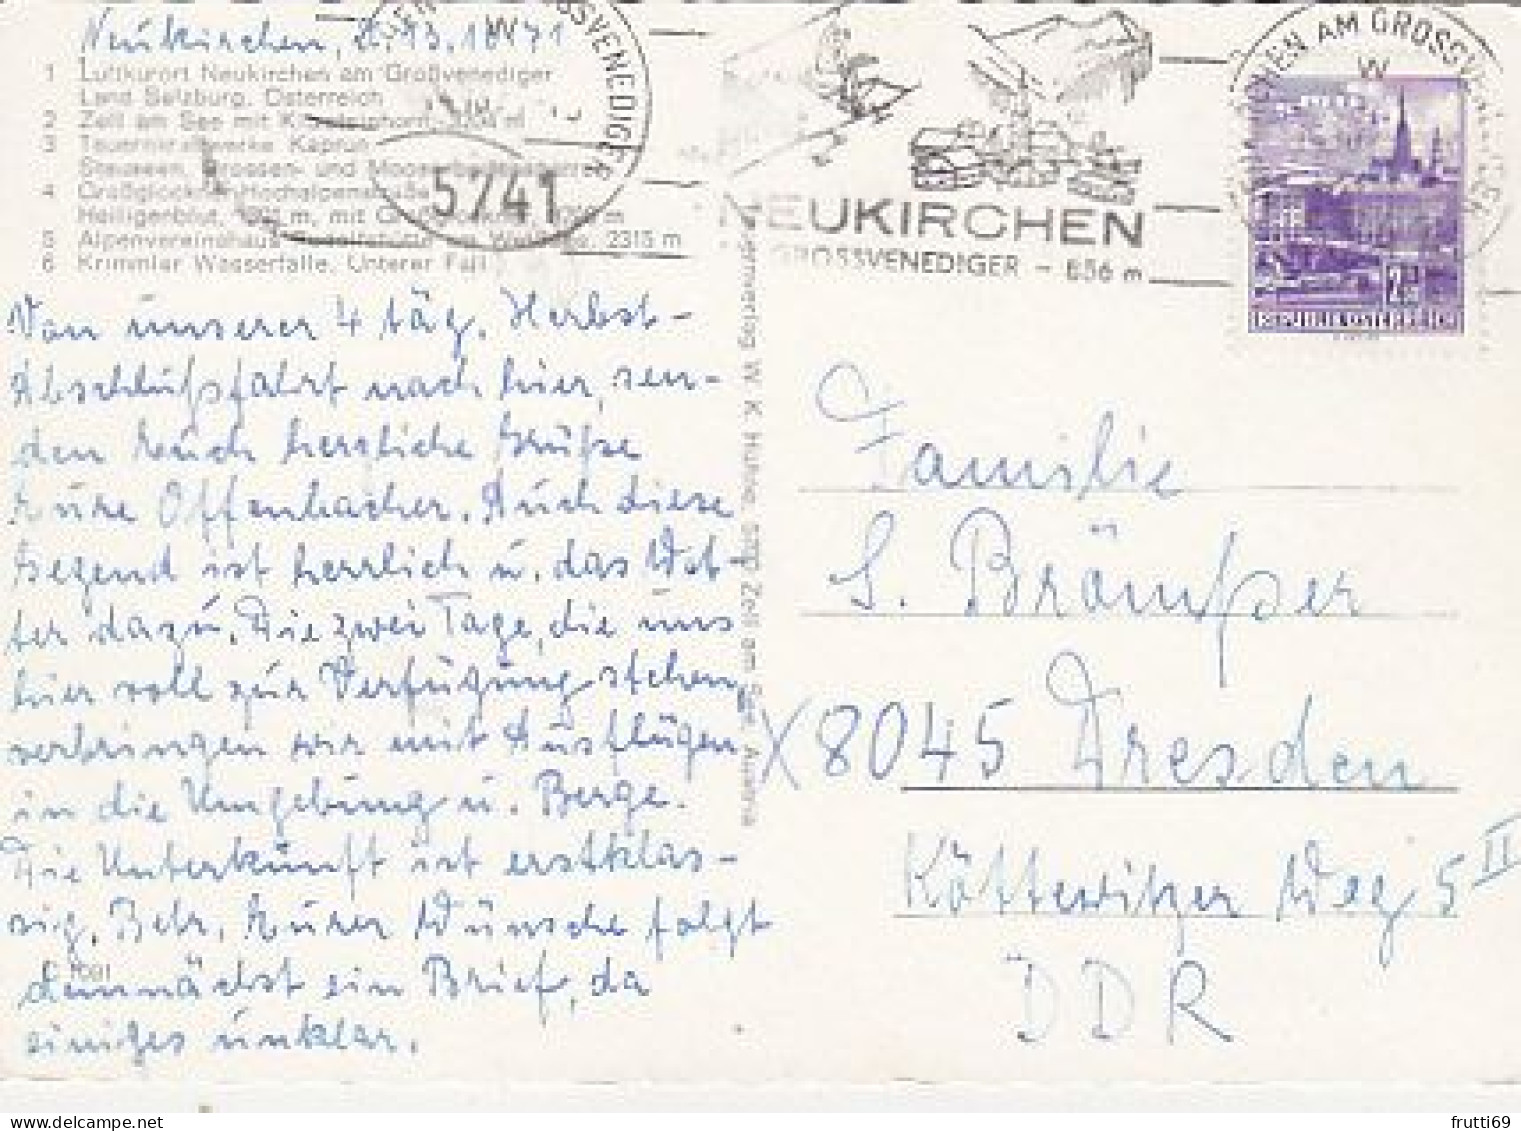 Neukirchen,
1 Luftkurort Neukirchen am Großvenediger
Land Salzburg, Österreich
2 Zell am See mit
3 Tauernkraftwerke Kaprun
Stauseen, und
4
Heiligenblut, m, mit
5 Alpenvereinshaus 2315 m
6 Krimmler Wasserfälle, Unterer Fall
5741
VENEDIGER
W
NEUKIRCHEN
GROSSVENEDIGER - 856 m
AM GROSSV
W
REPUBLIK ÖSTERREICH
Von unserer 4 täg. Herbst-
Abschlußfahrt nach hier, sen-
den Euch herzliche Grüße
Eure Offenbacher. Auch diese
Gegend ist herrlich u. das Wet-
ter dazu. Die zwei Tage, die uns
hier voll zur Verfügung stehen,
verbringen wir mit Ausflügen
in die Umgebung u. Berge.
Die Unterkunft ist erstklas-
sig. Betr. Eurer Wünsche folgt
demnächst ein Brief, da
einiges unklar.
W. K. Zell am See, Austria
Familie
S. Brömßer
X8045 Dresden
Köttewitzer Weg 5 II
DDR
frutti69